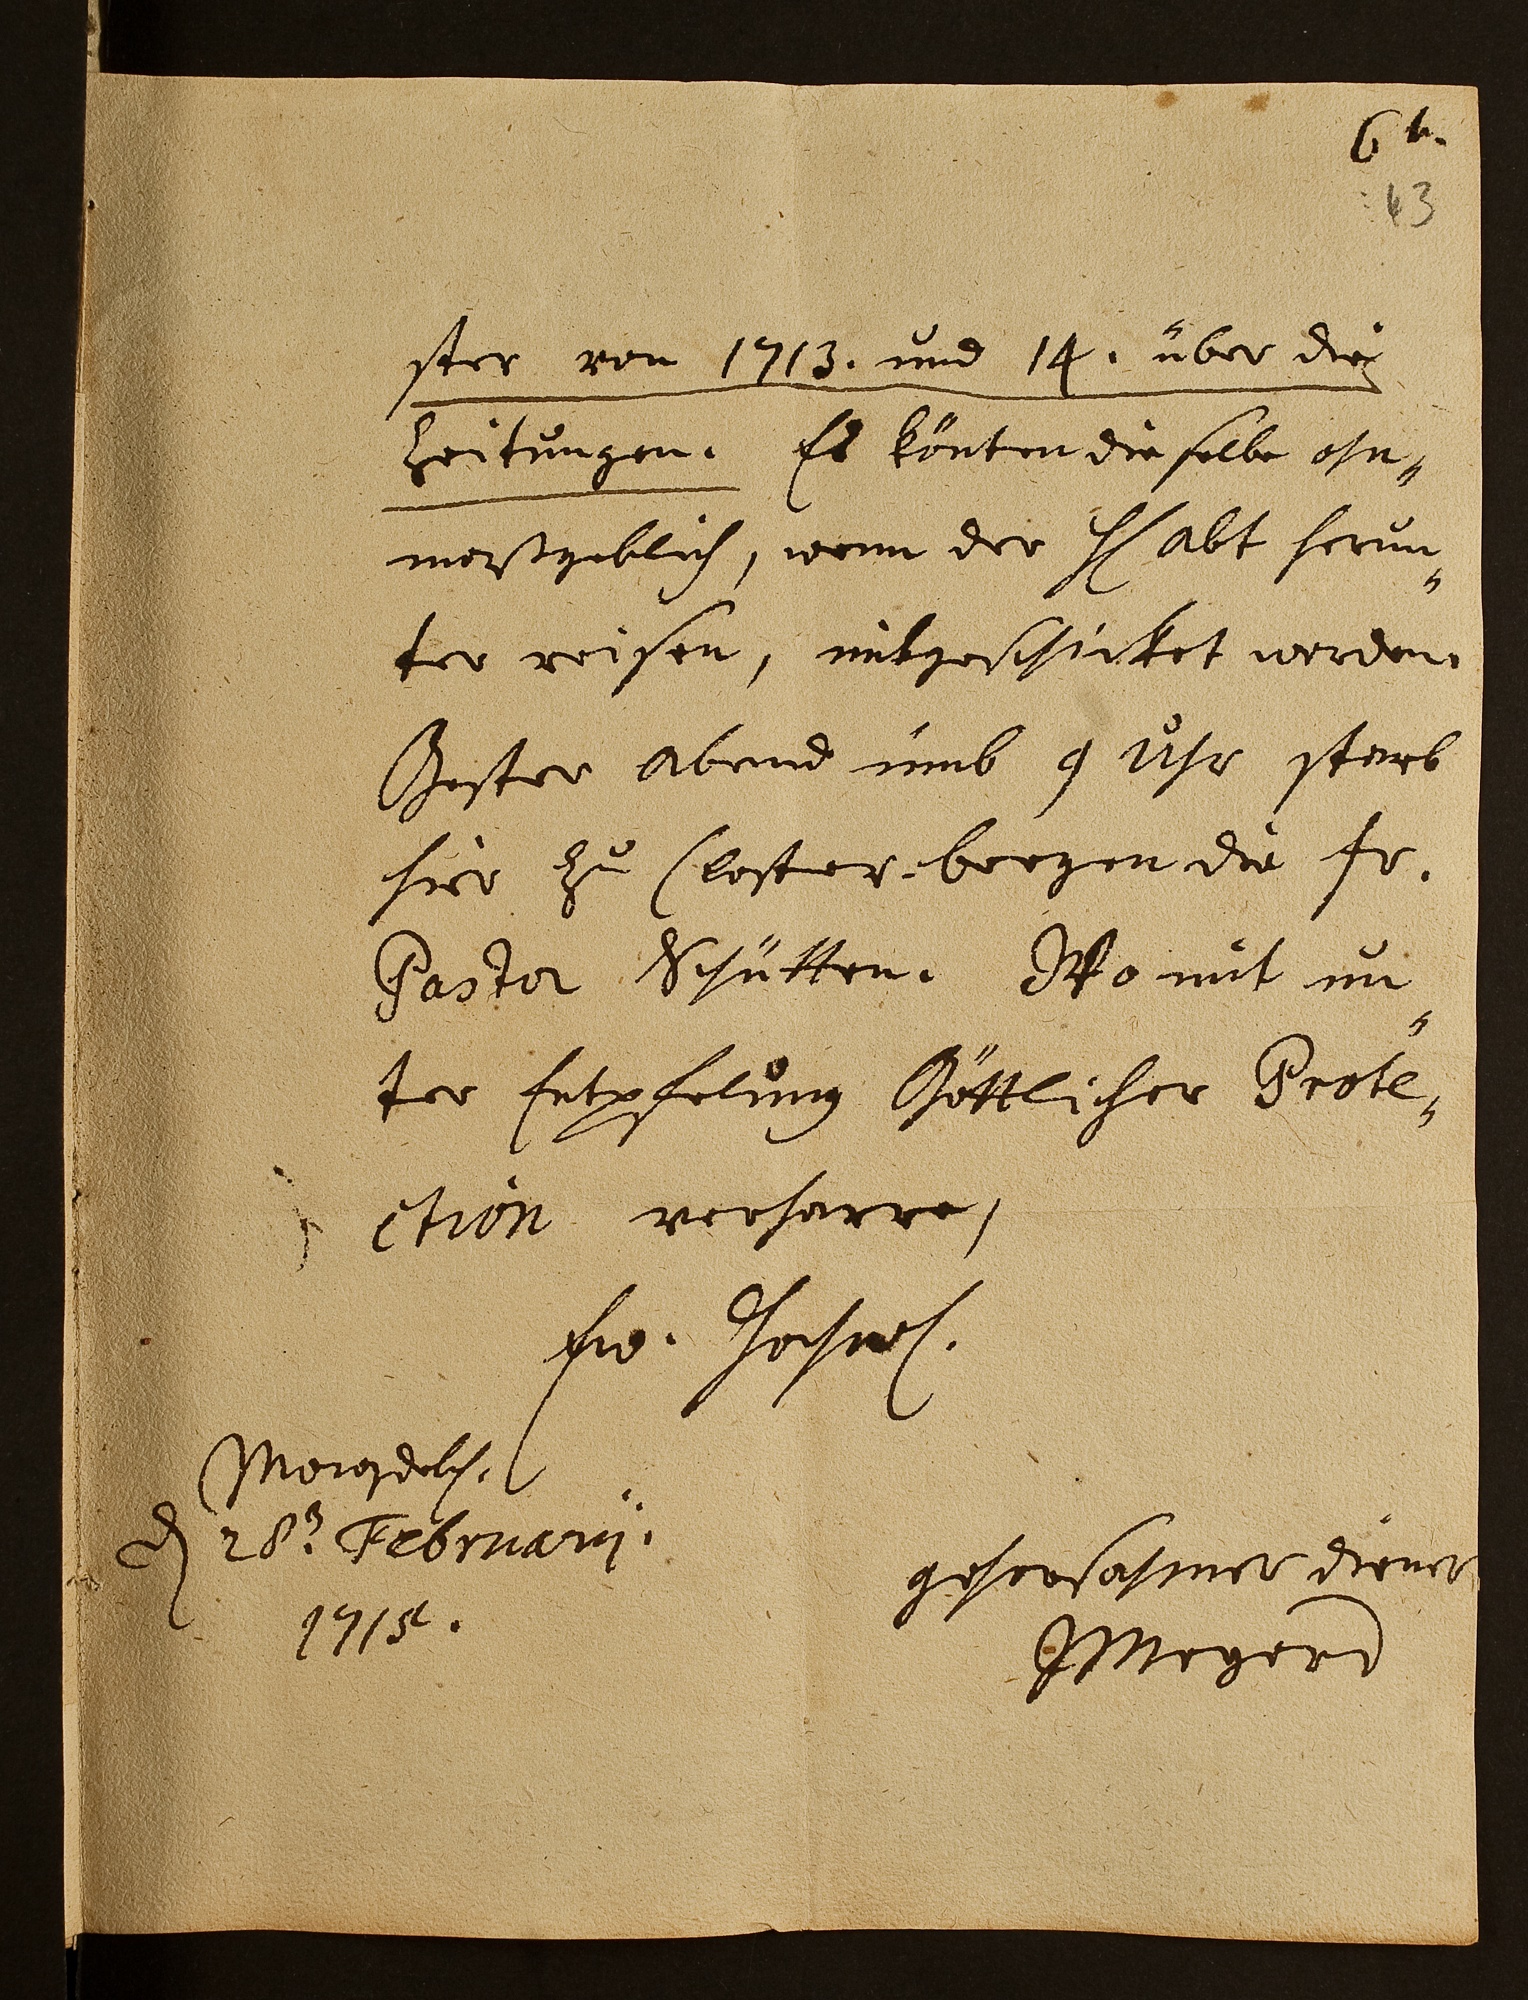 6b.
43
ster von 1713. und 14. über die
Zeitungen. Es könten dieselbe ohn„
maßgeblich, wenn der H Abt herun„
ter reisen, mitgeschicket werden.
Gester Abend umb 9 Uhr starb
hier zu Closter-bergen die Fr.
Pastor Schütten. Wo mit un„
ter Entpfelung Göttlicher Prote„
ction verharre,
Ew.
Magdeb.
28. Februarij.
1715.
gehorsahmer diener
JMeyer